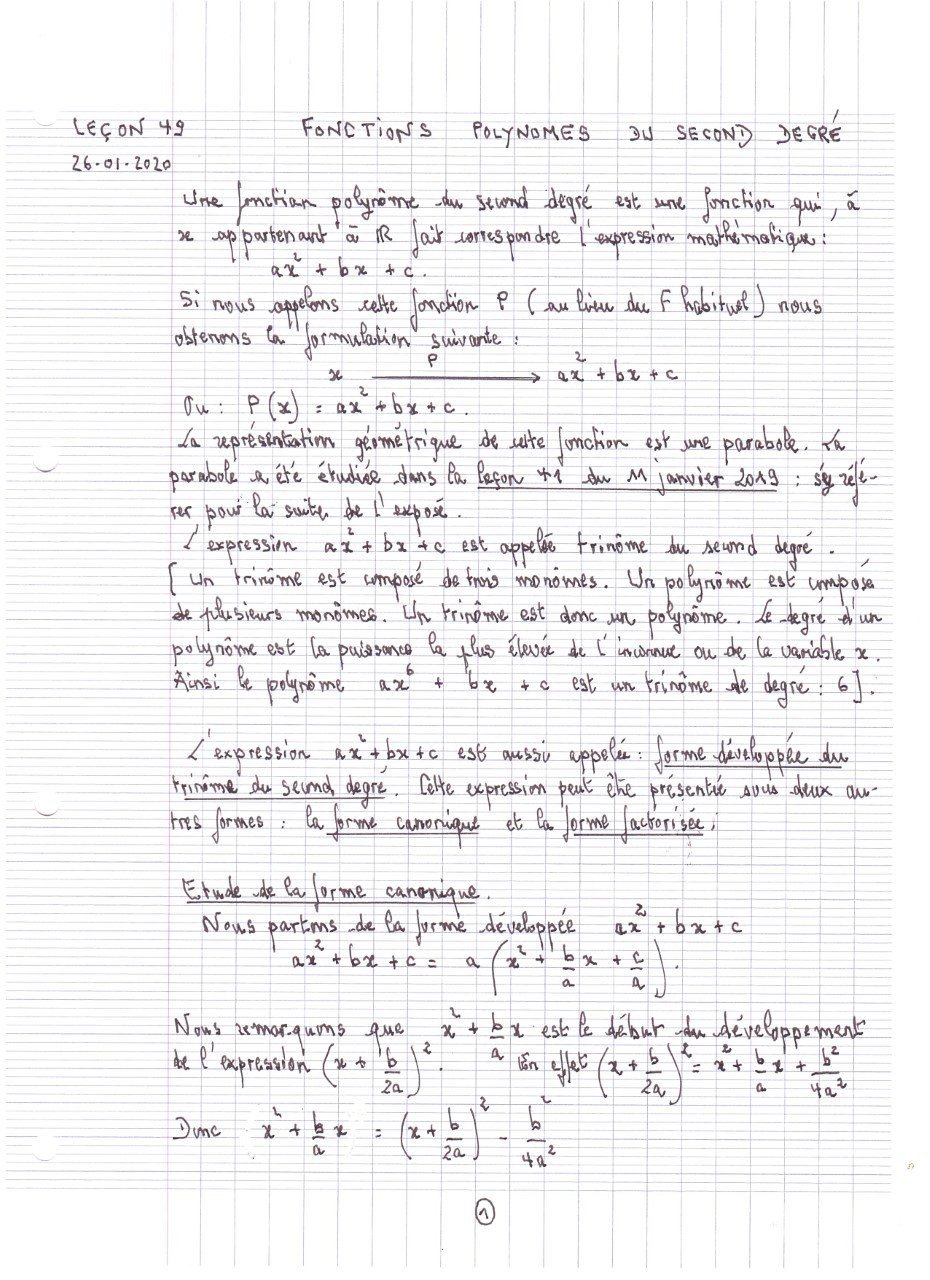 LEÇON 49 FONCTIONS POLYNOMES DU SECOND DEGRÉ
26-01-2020
Une fonction polynôme du second degré est une fonction qui, à
x appartenant à ℝ fait correspondre l'expression mathématique :
ax² + bx + c.
Si nous appelons cette fonction P (au lieu du F habituel) nous
obtenons la formulation suivante :
x —P→ ax² + bx + c
Ou : P(x) = ax² + bx + c.
La représentation géométrique de cette fonction est une parabole. La
parabole a été étudiée dans la leçon +1 du 11 janvier 2019 ; s'y réfé-
rer pour la suite de l'exposé.
L'expression ax² + bx + c est appelée trinôme du second degré.
[Un trinôme est composé de trois monômes. Un polynôme est composé
de plusieurs monômes. Un trinôme est donc un polynôme. Le degré d'un
polynôme est la puissance la plus élevée de l'inconnue ou de la variable x.
Ainsi le polynôme ax⁶ + bx + c est un trinôme de degré : 6].
L'expression ax² + bx + c est aussi appelée : forme développée du
trinôme du second degré. Cette expression peut être présentée sous deux au-
tres formes : la forme canonique et la forme factorisée.
Etude de la forme canonique.
Nous partons de la forme développée ax² + bx + c
ax² + bx + c = a (x² + b/a x + c/a).
Nous remarquons que x² + b/a x est le début du développement
de l'expression (x + b/2a)². En effet (x + b/2a)² = x² + b/a x + b²/4a²
Donc x² + b/a x = (x + b/2a)² - b²/4a²
1